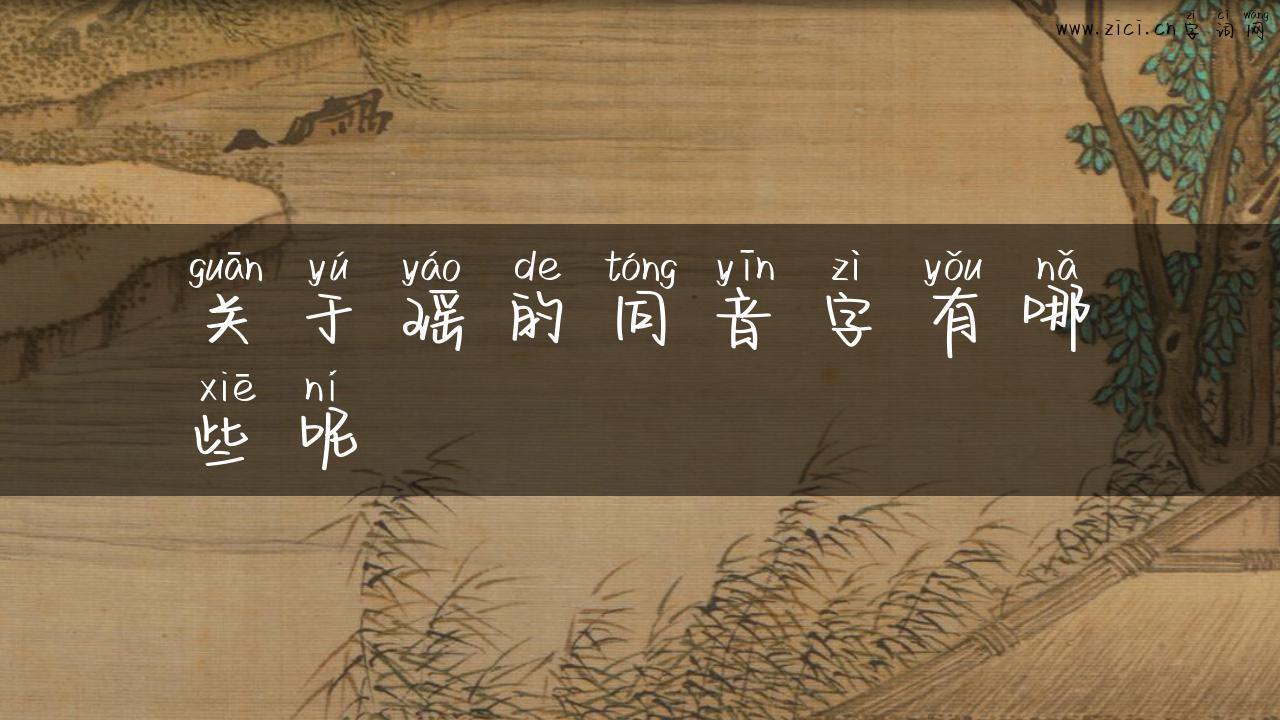 zì cí wǎng
www.zici.cn字词网
guān yú yáo de tóng yīn zì yǒu nǎ
关于瑶的同音字有哪
xiē ní
些呢